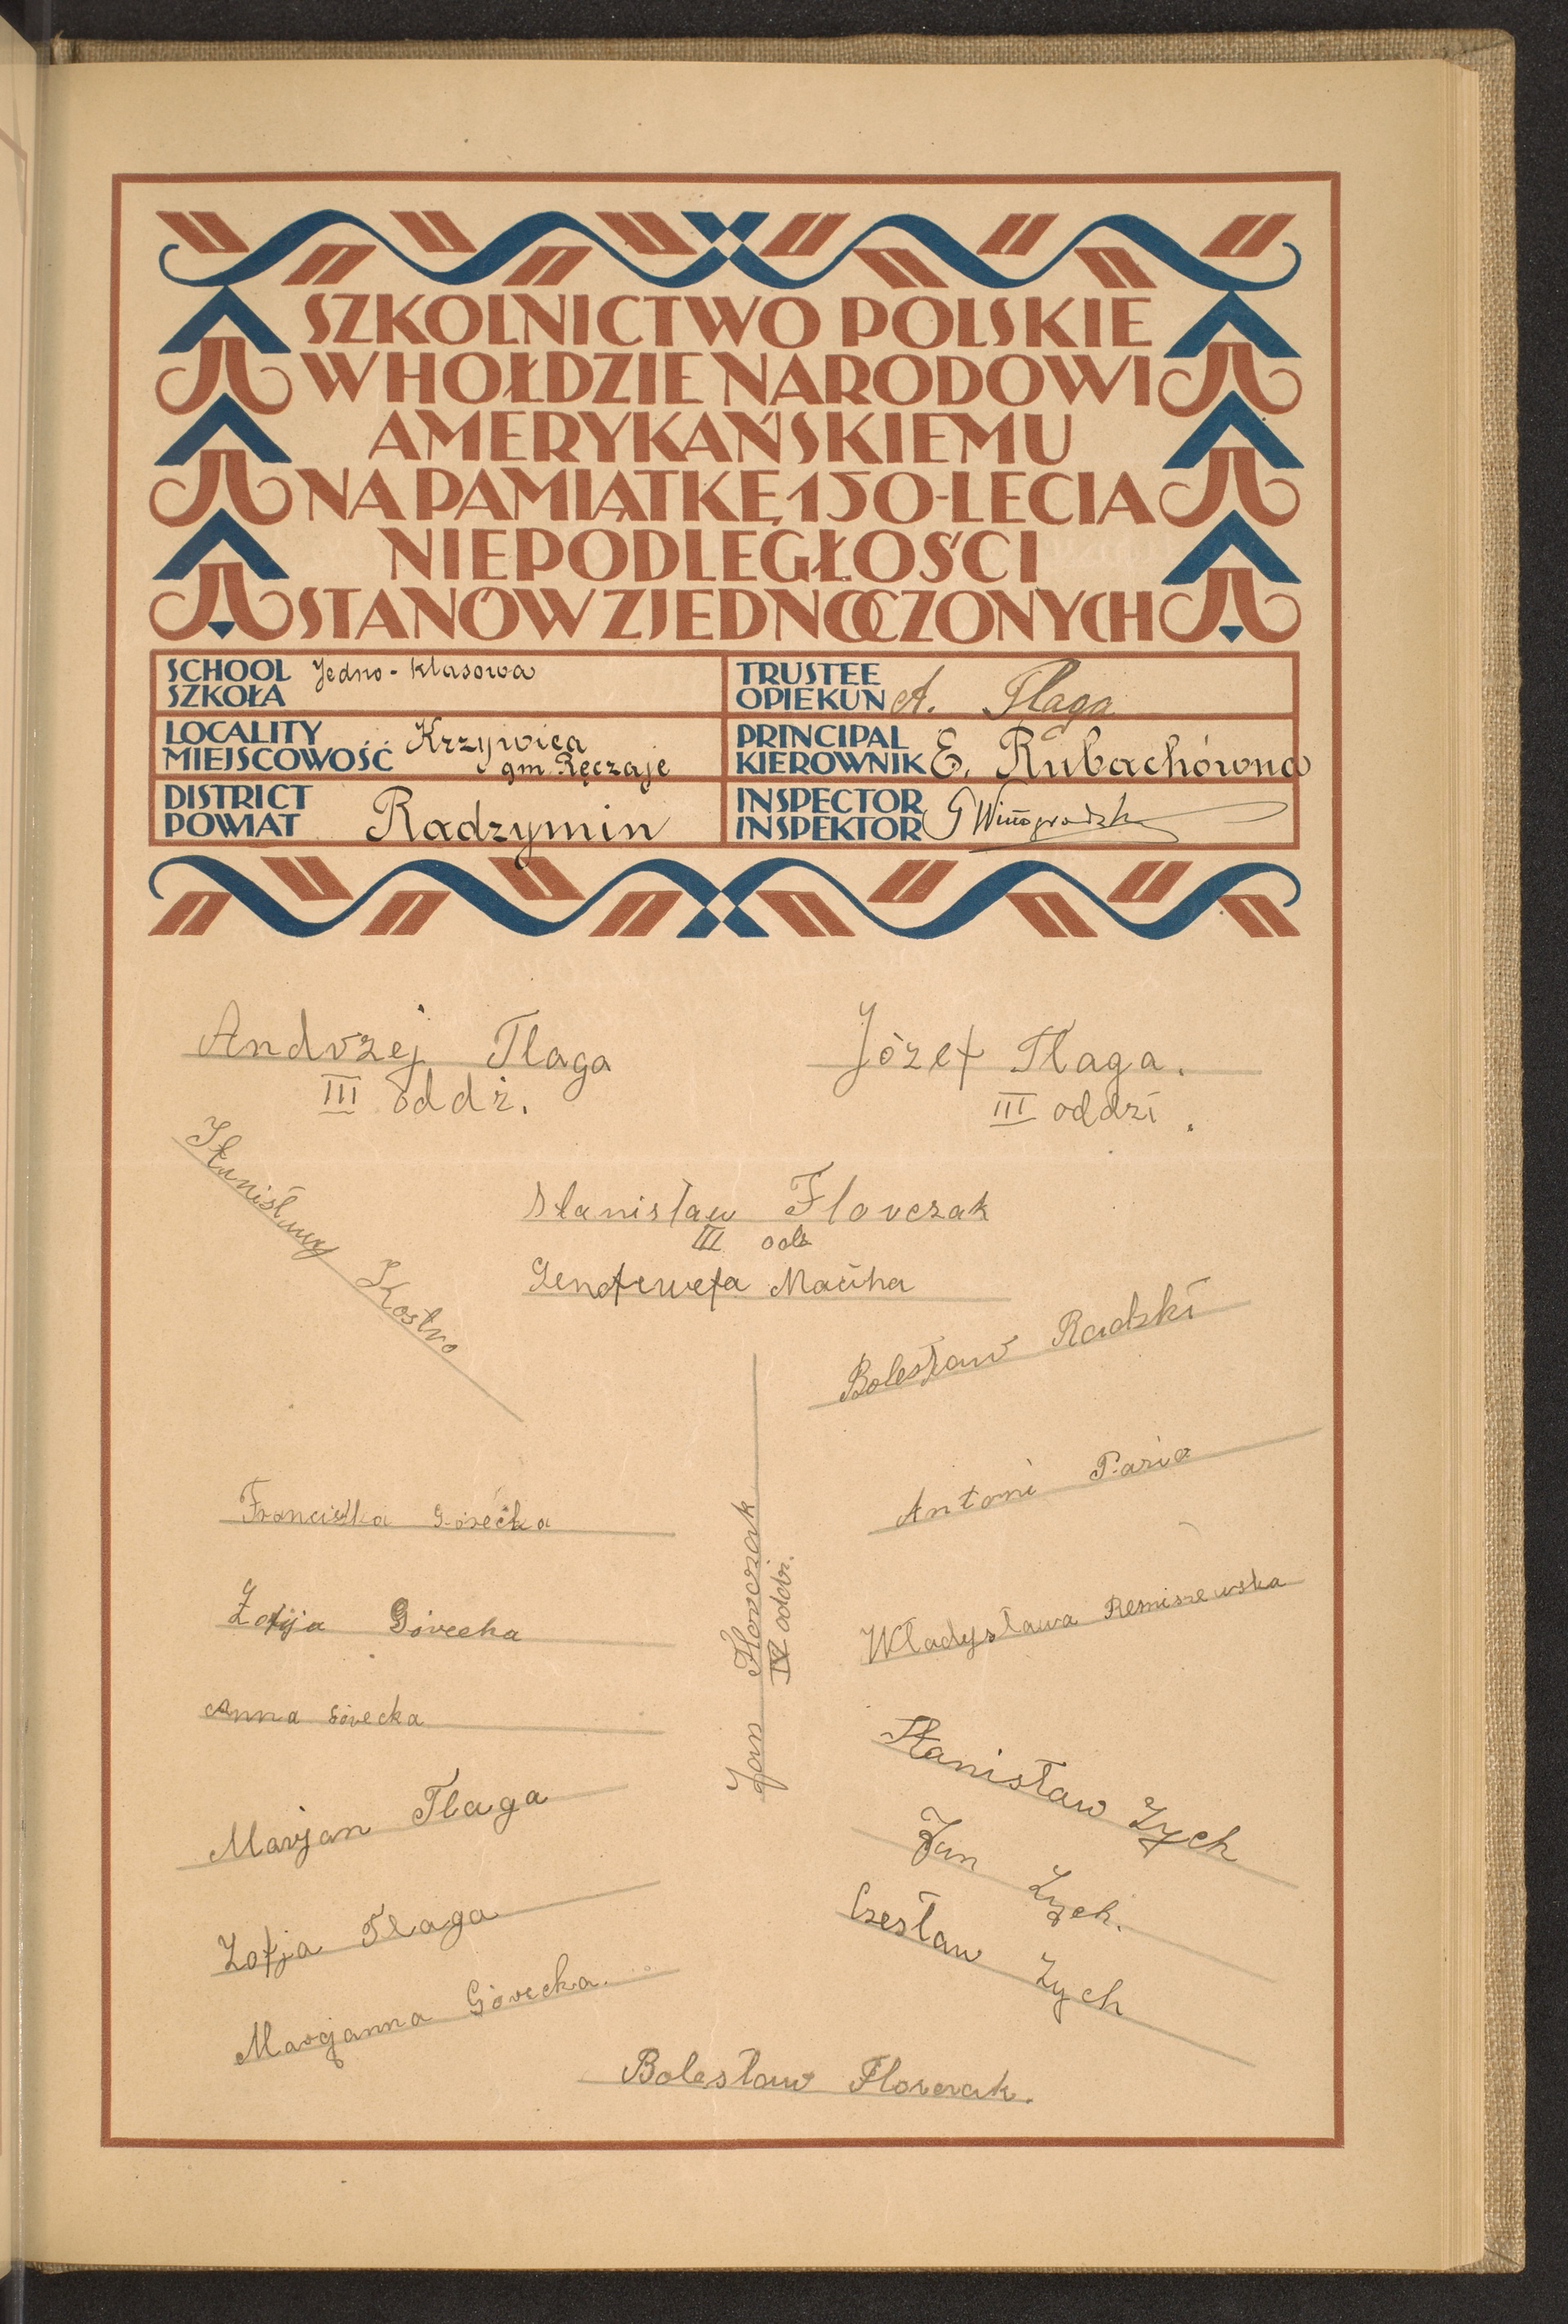 SZKOLNICTWO POLSKIE
W HOŁDZIE NARODOWI
AMERYKAŃSKIEMU
NA PAMIĄTKĘ 150-LECIA
NIEPODLEGŁOŚCI
STANÓW ZJEDNOCZONYCH
SCHOOL
SZKOŁA Jedno-klasowa
TRUSTEE
OPIEKUN A. Tlaga
LOCALITY
MIEJSCOWOŚĆ Krzywica
gm. Ręczaje
PRINCIPAL
KIEROWNIK E. Rubachówna
DISTRICT
POWIAT Radzymin
INSPECTOR
INSPEKTOR G Winogrodzki
Andrzej Tlaga
III oddz.
Józef Tłaga.
III oddzi.
Stanisławy Kostro
Stanisław Florczak
III odz
Genefwefa
Bolesław Radzki
Antoni Paria
Franciszka Górecka
Jan Florczak
IV oddz.
Zofija Górecka
Władysława Remiszewska
Anna Górecka
Stanisław Zych
Marjan Tlaga
Jan Zych.
Czesław Zych
Zofja Tlaga
Marjanna Górecka.
Bolesław Florczak.